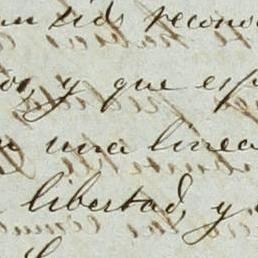 sids recono
os, y que esp
una linea
libertad, y